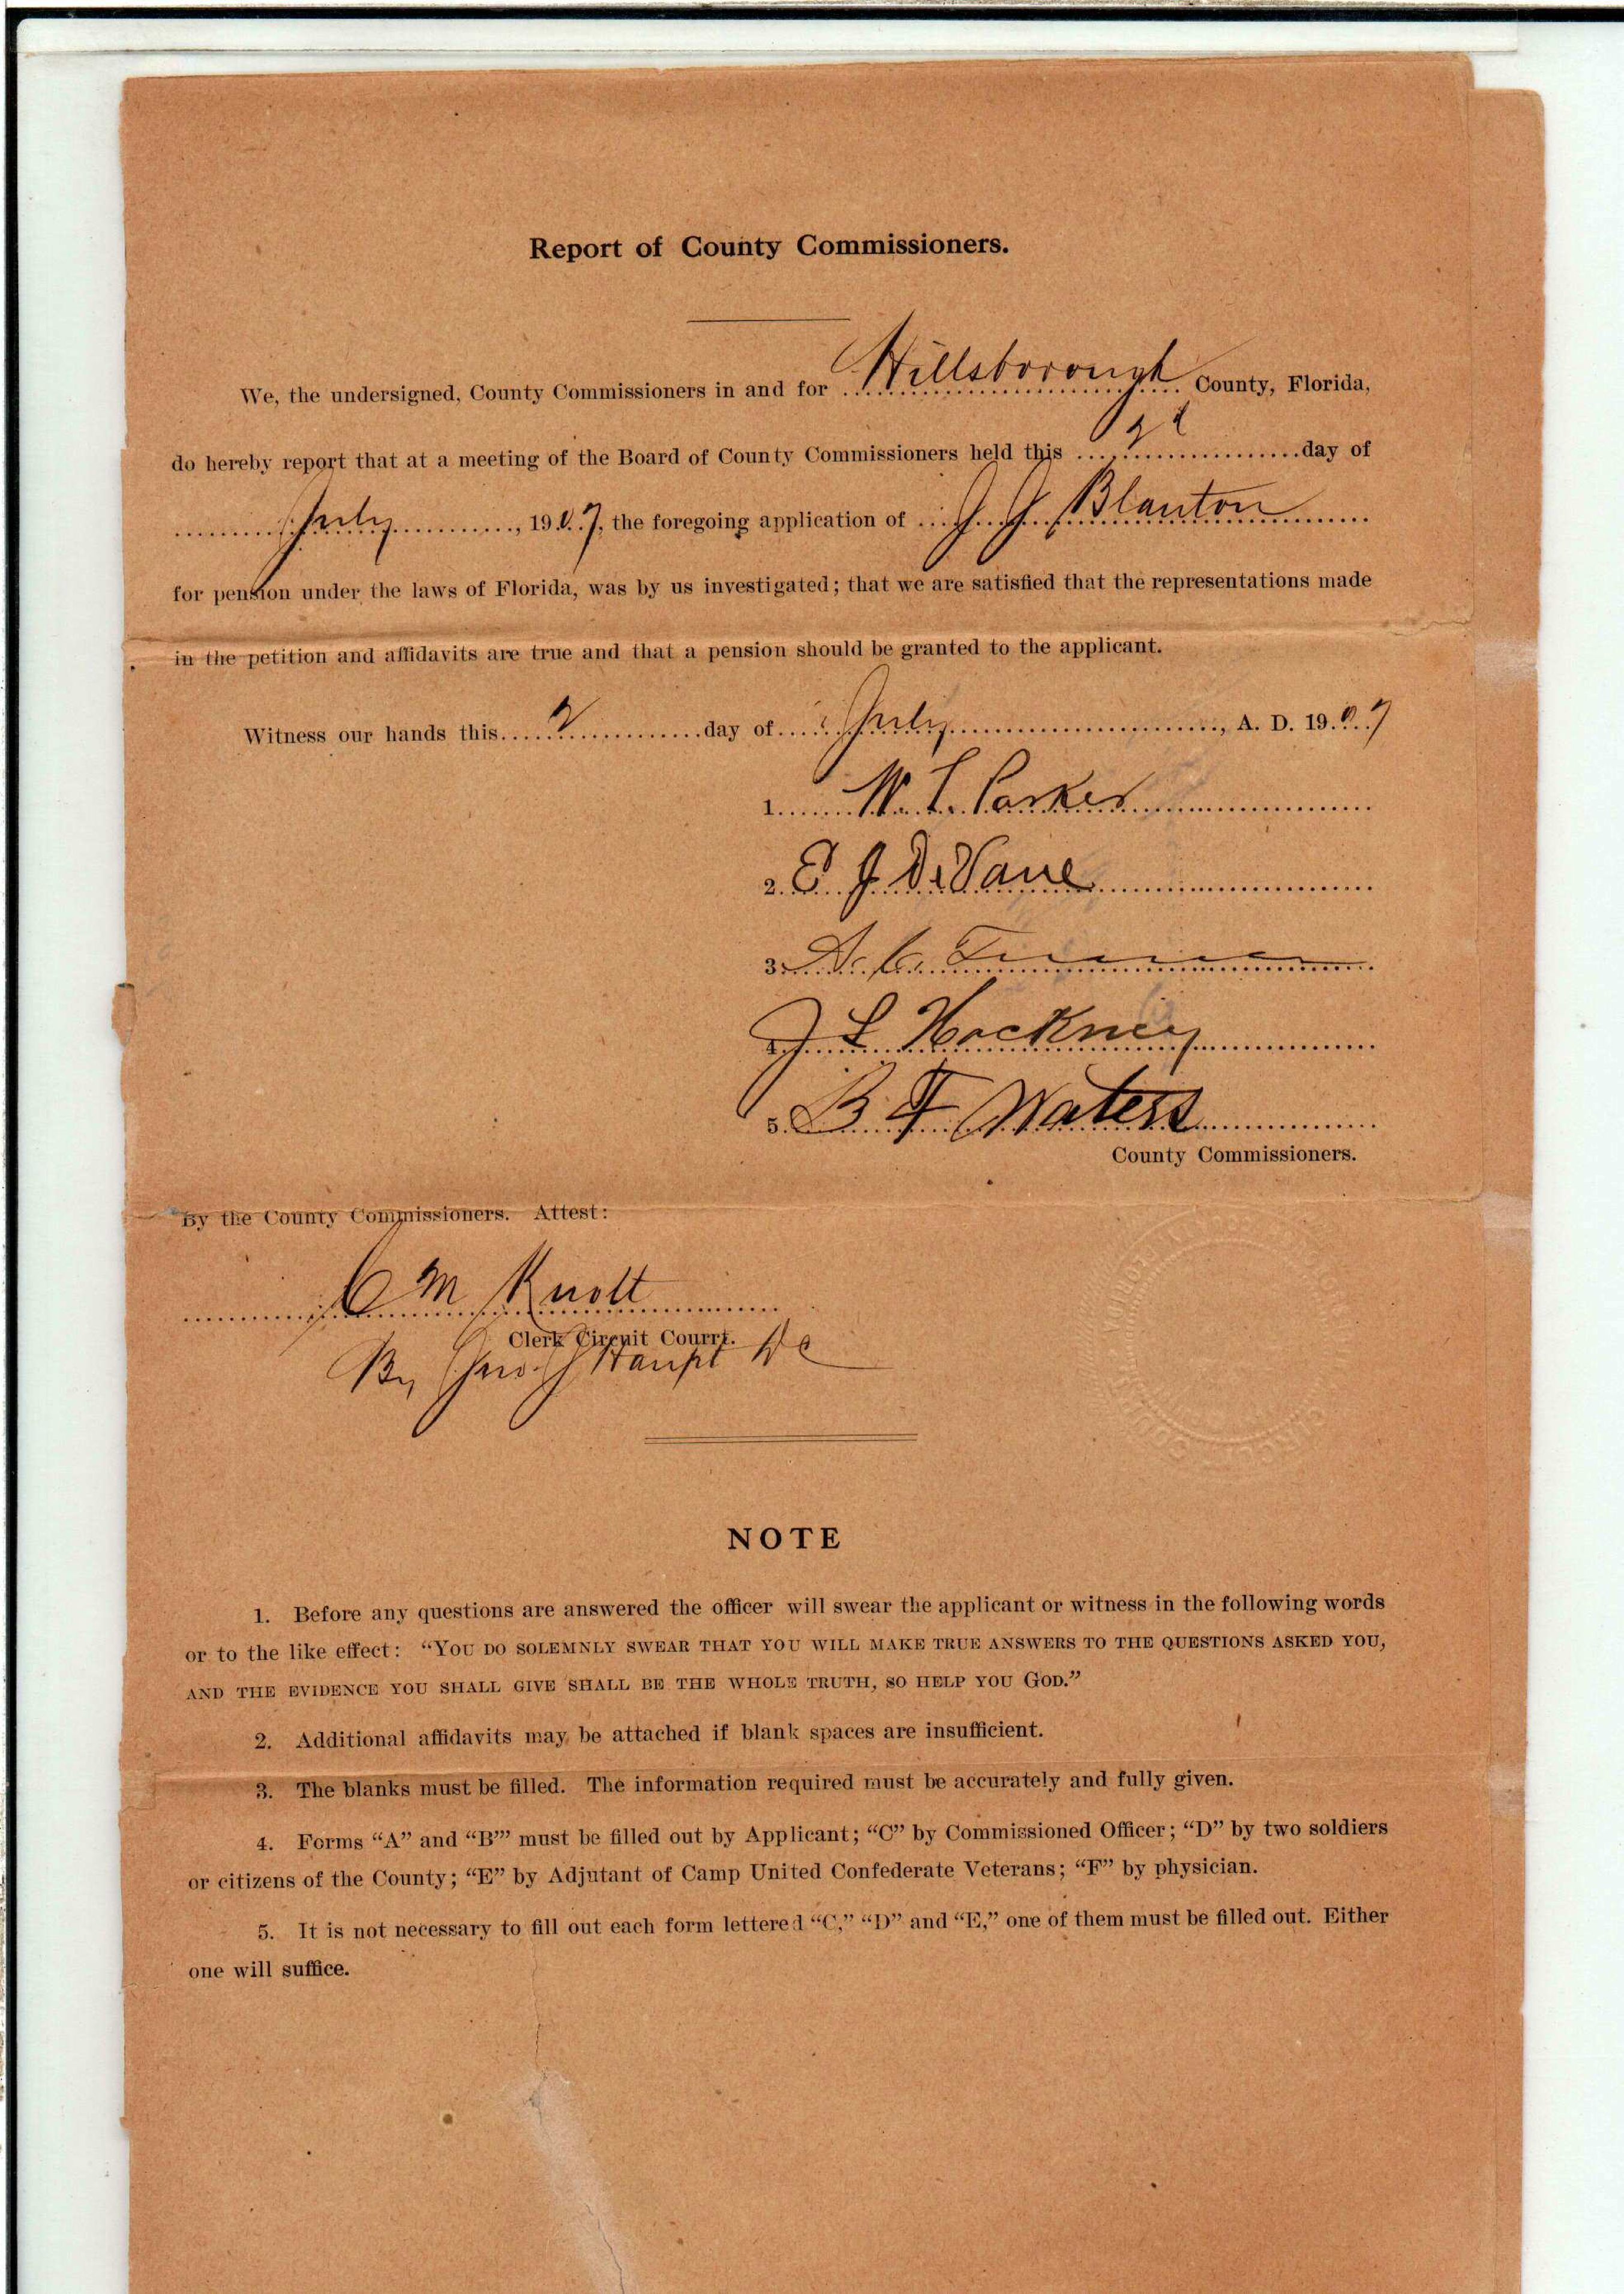 Report of County Commissioners.
We, the undersigned, County Commissioners in and for Hillsborough County, Florida,
do hereby report that at a meeting of the Board of County Commissioners held this 2d day of
July, 1907, the foregoing application of J. J. Blanton
for pension under the laws of Florida, was by us investigated; that we are satisfied that the representations made
in the petition and affidavits are true and that a pension should be granted to the applicant.
Witness our hands this 2 day of July, A. D. 1907
1. W. T. Parker
2. E J DeVane
3.
4. J L Hackney
5. B F Waters
County Commissioners.
By the County Commissioners. Attest:
C M Knott
Clerk Circuit Courrt.
By Jno. Haupt DC
NOTE
1. Before any questions are answered the officer will swear the applicant or witness in the following words
or to the like effect: “YOU DO SOLEMNLY SWEAR THAT YOU WILL MAKE TRUE ANSWERS TO THE QUESTIONS ASKED YOU,
AND THE EVIDENCE YOU SHALL GIVE SHALL BE THE WHOLE TRUTH, SO HELP YOU GOD.”
2. Additional affidavits may be attached if blank spaces are insufficient.
3. The blanks must be filled. The information required must be accurately and fully given.
4. Forms “A” and “B”’ must be filled out by Applicant; “C” by Commissioned Officer; “D” by two soldiers
or citizens of the County; “E” by Adjutant of Camp United Confederate Veterans; “F” by physician.
5. It is not necessary to fill out each form lettered “C,” “D” and “E,” one of them must be filled out. Either
one will suffice.